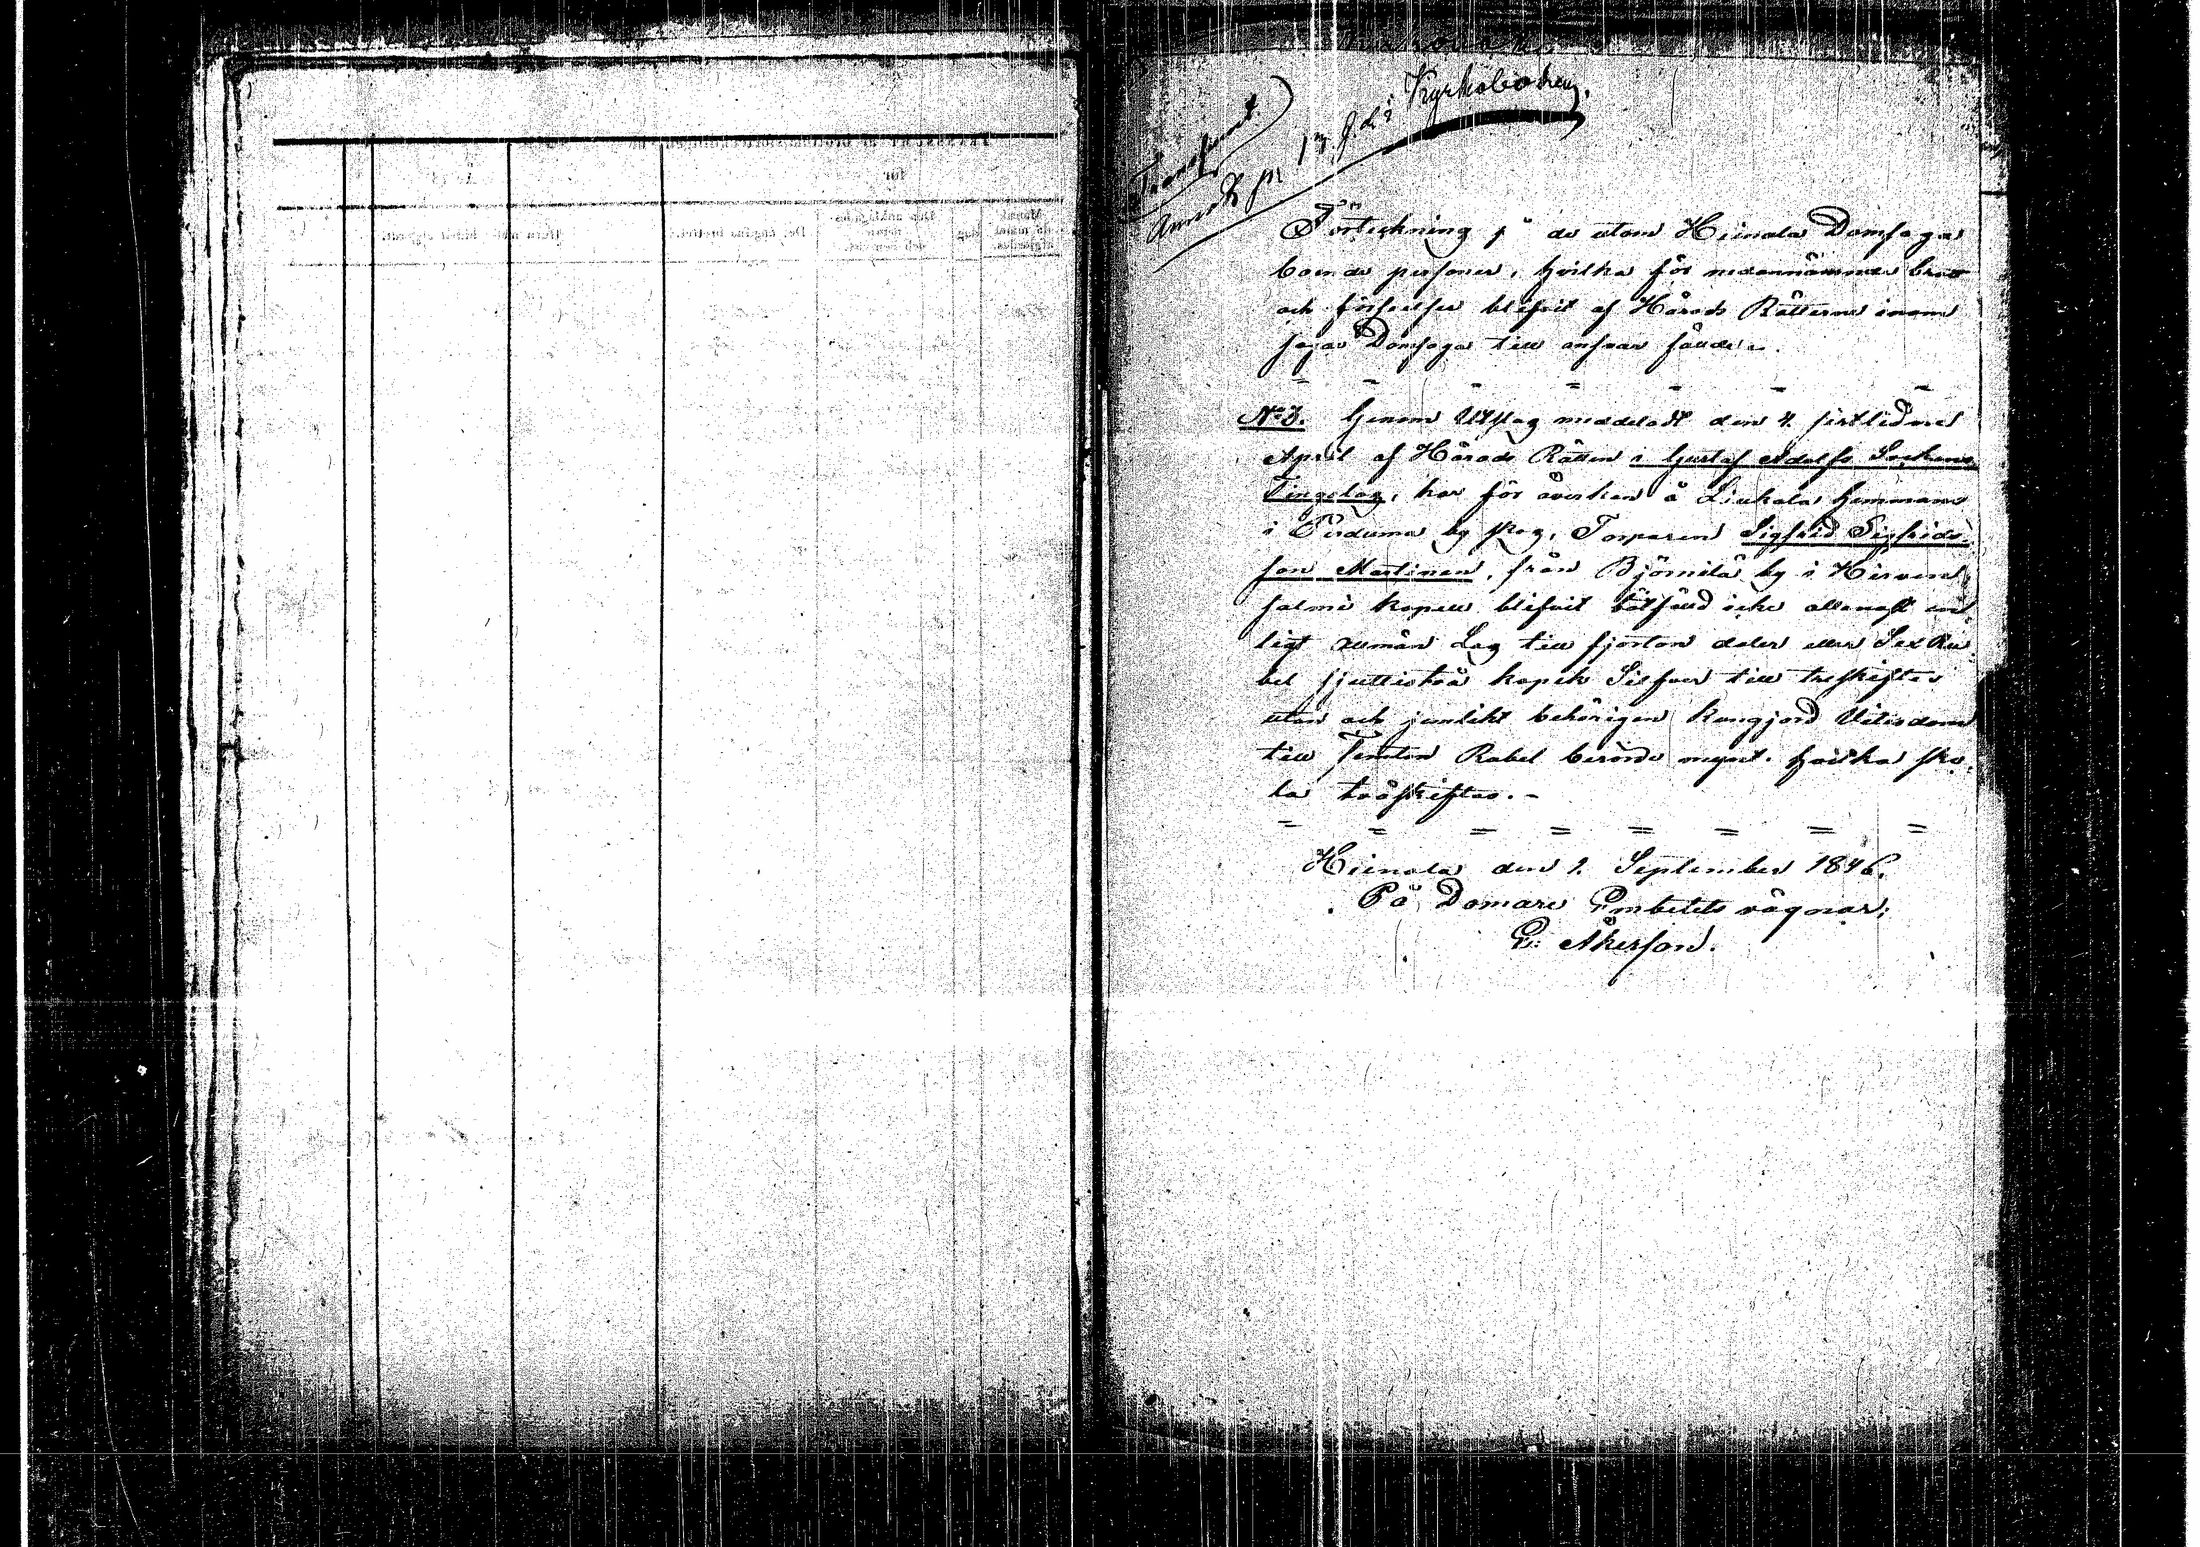 Kyrkoboken.
Transsumt
Anmält på 13. f. d. i
Förteckning på de utom Heinola Domsaga
boende personer, hvilka för nedannämnde brott
och förseelser blifvit af Härads Rätterne inom
sagde Domsaga till ansvar fällde.
No 3. Genom Utslag meddeladt den 4. sistlidne
April af Härads Rätten i Gustaf Adolfs Sockens
Tingslag, har för åverkan å Liukala hemmans
i Purduma by skog, Torparen Sigfrid Sigfrids-
son Martinen, från Björnilä by i Hirven-
salmi kapell blifvit bötfälld icke allenast en-
ligt allmän Lag till fjorton daler eller Sex Ru-
bel sjuttiotvå kopek Silfver till treskiftes
utan och jemlikt behörigen kungjord Vitesdom
till Femton Rubel berörde mynt, hvilka sko-
la tvåskiftas.-
Heinola den 1. September 1846.
På Domare Embetets vägnar:
E: Åkerson.